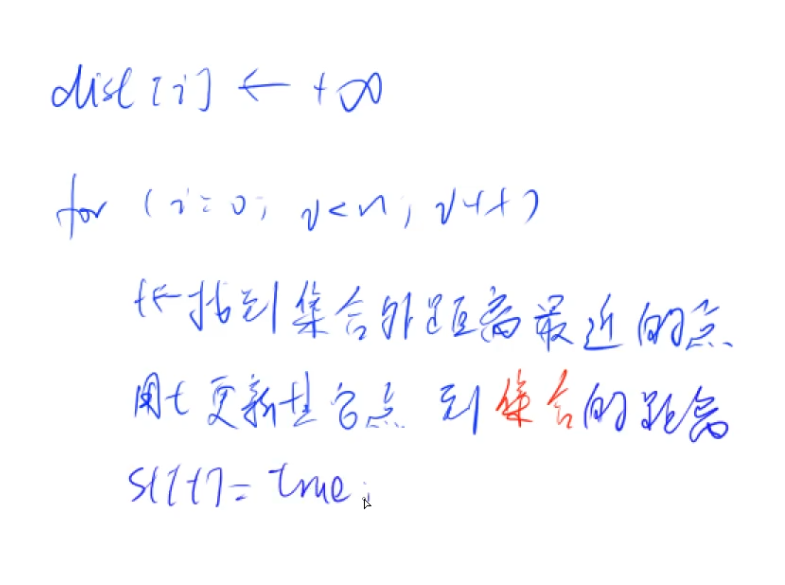 dist[i] ← +∞
for (i=0; i<n; i++)
t←找到集合外距离最近的点
用t更新其它点 到集合的距离
st[t]=true;